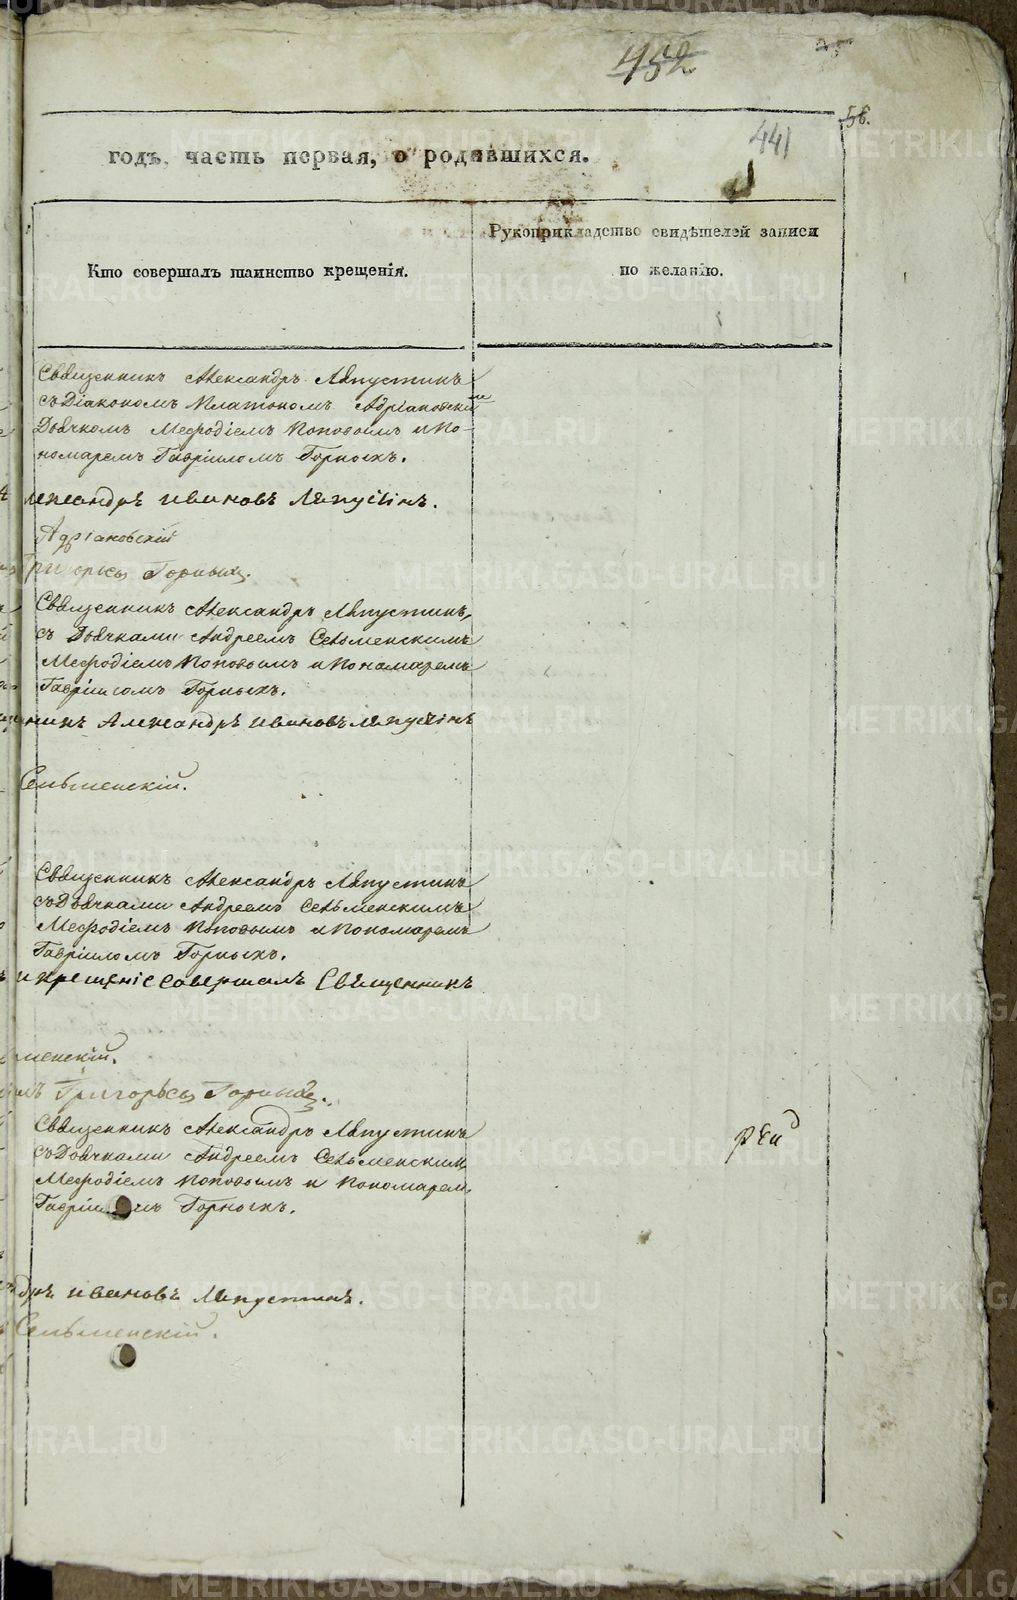 452
56.
441
годъ, часть первая, о родившихся.
Кто совершалъ таинство крещенія.
Рукоприкладство свидѣтелей записи
по желанію.
Священникъ Александръ Ляпустинъ
съ Діакономъ Платономъ Адріановскимъ
Дьячкомъ Мефодіемъ Поповымъ и По-
номаремъ Гавріиломъ Горныхъ.
лександръ Ивановъ Ляпустінъ.
Адріановскій
Григорьевъ Горныхъ.
Священникъ Александръ Ляпустинъ,
съ Дьячками Андреемъ Сельменскимъ
Мефодіемъ Поповымъ и Пономаремъ
Гавріиломъ Горныхъ.
никъ Александръ Ивановъ Ляпустінъ
Сельменскій.
Священникъ Александръ Ляпустинъ
съ Дьячками Андреемъ Сельменскимъ
Мефодіемъ Поповымъ и Пономаремъ
Гавріиломъ Горныхъ.
и крещеніе совершалъ Священникъ
менскій.
Григорьевъ Горныхъ.
Священникъ Александръ Ляпустинъ
съ Дьячками Андреемъ Сельменским
Мефодіемъ Поповымъ и Пономарем
Гавріиломъ Горныхъ.
ндръ Ивановъ Ляпустинъ.
Сельменскій.
METRIKI.GASO-URAL.RU